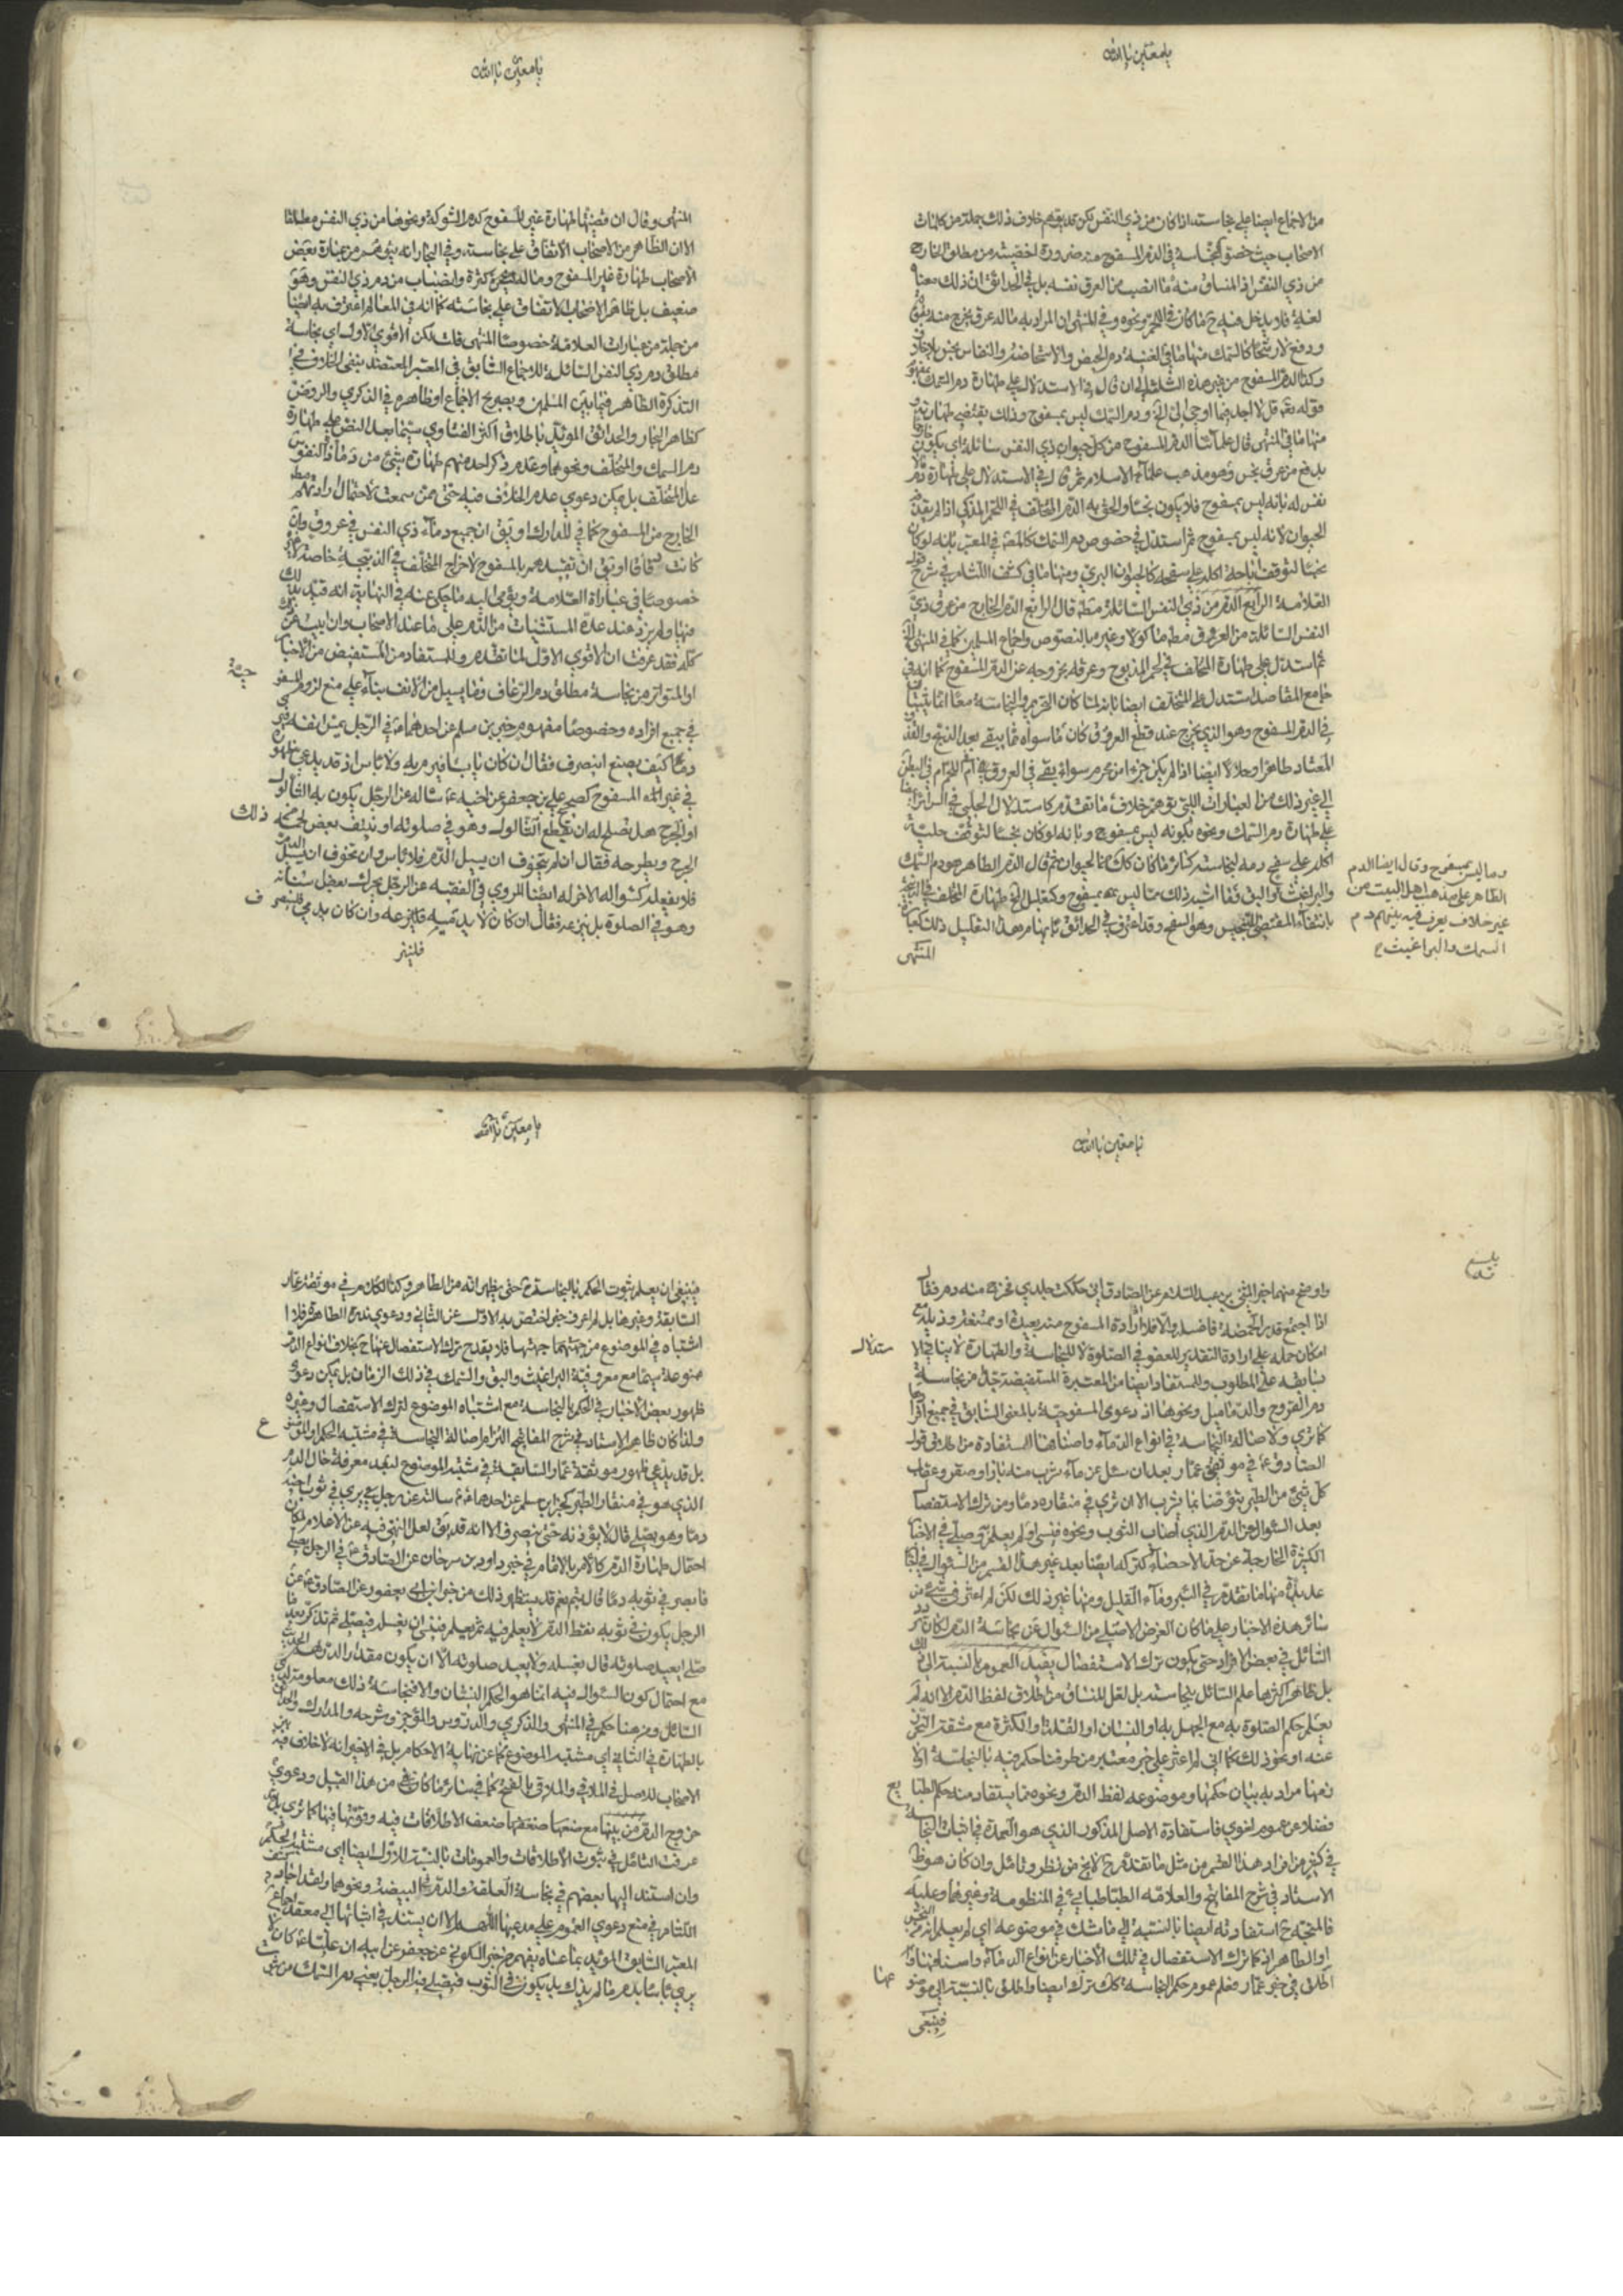 يا معين يا الله
من الاجماع ايضا على نجاسته اذا كان من ذي النفس لكن قد يوهم خلاف ذلك جملة من كلمات
الاصحاب حيث خصوا النجاسة في الدم المسفوح ضرورة اخصيته من مطلق الخارج
من ذي النفس اذ المنساق منه ما انصب من العرق نفسه بل في الحدائق ان ذلك معناه
لغة فلا يدخل فيه ح ما كان في اللحم ونحوه وفي المنتهى ان المراد به ما له عرق يخرج منه بقوة
ودفع لا رشحا كالسمك منها ما في الغنية دم الحيض والاستحاضة والنفاس نجس بلا خلاف
وكذا الدم المسفوح من غير هذه الثلثة الى ان قال في الاستدلال على طهارة دم السمك
قوله تعالى قل لا اجد فيما اوحي الى الخ ودم السمك ليس بمسفوح وذلك يقتضي طهارته و
منها ما في المنتهى قال علمائنا الدم المسفوح من كل حيوان ذي النفس سائلة اي يكون خارجا
بدفع من عرق نجس وهو مذهب علماء الاسلام ثم قال في الاستدلال على طهارة دم ما لا
نفس له بانه ليس بمسفوح فلا يكون نجسا والحق به الدم المتخلف في اللحم المذكى اذا لم يقذفه
الحيوان لانه ليس بمسفوح ثم استدل في خصوص دم السمك كالمصنف في المعتبر بانه لو كان
نجسا لتوقف اباحة اكله على سفحه كالحيوان البري ومنها ما في كشف اللثام في شرح قول
العلامة الرابع الدم من ذي النفس السائلة مطلقا قال الرابع الدم الخارج من عرق ذي
النفس السائلة من العروق مطلقا ماكولا وغيره بالنصوص واجماع المسلمين كما في المنتهى
ثم استدل على طهارة المتخلف في لحم المذبوح وعرقه بخروجه عن الدم المسفوح كما انه في
جامع المقاصد استدل على المتخلف ايضا بانه لما كان التحريم والنجاسة معا انما يثبتان
في الدم المسفوح وهو الذي يخرج عند قطع العروق كان ما سواه مما يبقى بعد الذبح والقذف
المعتاد طاهرا وحلالا ايضا اذا لم يكن جزءا من محرم سواء بقي في العروق ام اللحم ام في البطن
الى غير ذلك من العبارات التي توهم خلاف ما تقدم كاستدلال الحلي في السرائر ايضا
على طهارة دم السمك ونحوه بكونه ليس بمسفوح وبانه لو كان نجسا لتوقف حلية
اكله على سفح دمه لنجاسته كسائر ما كان كك من الحيوان ثم قال الدم الطاهر هو دم السمك
والبراغيث والبق وما اشبه ذلك مما ليس بمسفوح وكتعليل طهارة المتخلف في الذبيحة
بانتفاء المقتضي للتنجيس وهو السفح وقد اعترف في الحدائق بايهام هذا التعليل ذلك كعبارة
المنتهى
وما ليس بمسفوح وقال ايضا الدم
الطاهر على مذهب اهل البيت من
غير خلاف يعرف فيه بينهم دم
السمك والبراغيث
يا معين يا الله
المنتهى وقال ان قضيتها طهارة غير المسفوح كدم الشوكة ونحوها من ذي النفس مطلقا
الا ان الظاهر من الاصحاب الاتفاق على نجاسته وفي البحار انه يتوهم من عبارة بعض
الاصحاب طهارة غير المسفوح وما ليس كثرة وانصباب من دم ذي النفس وهو
ضعيف بل ظاهر الاصحاب الاتفاق على نجاسته كما انه في المعالم اعترف به ايضا
من جملة من عبارات العلامة خصوصا المنتهى قلت لكن الاقوى الاول اي نجاسة
مطلق دم ذي النفس السائلة للاجماع السابق في المعتبر المعتضد بنفي الخلاف في
التذكرة الظاهر فيما بين المسلمين وبصريح الاجماع او ظاهره في الذكرى والروض
كظاهر البحار والحدائق المؤيد باطلاق اكثر الفتاوى سيما بعد النص على طهارة
دم السمك والمتخلف ونحوهما وعدم ذكر احد منهم طهارة شيء من دماء ذي النفوس
عدا المتخلف بل يمكن دعوى عدم الخلاف فيه حتى ممن سمعت لاحتمال ارادتهم مطلق
الخارج من المسفوح كما في المدارك او يق ان جميع دماء ذي النفس في عروق وان
كانت دقاقا او يق ان تقييدهم بالمسفوح لاخراج المتخلف في الذبيحة خاصة
خصوصا في عبارات العلامة ويؤمي اليه ما حكي عنه في النهاية انه قيد بذلك
فيها ولم يزد عند عدة المستثنيات من الدم على ما عند الاصحاب وان ابيت عن ذلك
كله فقد عرفت ان الاقوى الاول لما تقدم وللمستفاد من المستفيض من الاخبار
او المتواتر من نجاسة مطلق دم الرعاف وما يسيل من الانف بناء على منع لزوم المسفوحية
في جميع افراده وخصوصا مفهوم خبر ابن مسلم عن احدهما في الرجل يمس انفه فيرى
دما كيف يصنع اينصرف فقال ان كان يابسا فليرم به ولا باس اذ قد يدعى ظهوره
في غير المسفوح كصحيح علي بن جعفر عن اخيه ع ساله عن الرجل يكون به الثالول
او الجرح هل يصلح له ان يقطع الثالول وهو في صلوته او ينتف بعض لحمه من ذلك
الجرح ويطرحه فقال ان لم يتخوف ان يسيل الدم فلا باس وان تخوف ان يسيل الدم
فلا يفعله كسواله الاخر له ايضا المروي في الفقيه عن الرجل يحرك بعض اسنانه
وهو في الصلوة هل ينزعه فقال ان كان لا يدميه فلينزعه وان كان يدمي فلينصرف
يا معين يا الله
بلغ
واوضح منها خبر المثنى بن عبد السلام عن الصادق اني حككت جلدي فخرج منه دم فقال
اذا اجتمع قدر الحمصة فاغسله والا فلا وارادة المسفوح منه بعيدة او ممتنعة وقد يدفع
امكان حمله على ارادة التقدير للعفو في الصلوة لا للنجاسة والطهارة لا ينافي الاستدلال
سابقه على المطلوب والمستفاد ايضا من المعتبرة المستفيضة جدا من نجاسة
دم القروح والدماميل ونحوها اذ دعوى المسفوحية بالمعنى السابق في جميع افرادها
كما ترى ولاصالة النجاسة في انواع الدماء واصنافها المستفادة من اطلاق قول
الصادق ع في موثق عمار بعد ان سئل عن ماء شرب منه باز او صقر او عقاب
كل شيء من الطير يتوضا بما يشرب الا ان ترى في منقاره دما ومن ترك الاستفصال
بعد السؤال عن الدم الذي اصاب الثوب ونحوه فنسي او لم يعلم حتى صلى في الاخبار
الكثيرة الخارجة عن حد الاحصاء كتركه ايضا بعد غير هذا القسم من السؤال في اخبار
عديدة منها ما تقدم في البئر وماء القليل ومنها غير ذلك لكن لم اعثر في شيء من
سائر هذه الاخبار على ما كان الغرض الاصلي من السؤال عن نجاسة الدم لمكان تردد
السائل في بعض الافراد حتى يكون ترك الاستفصال يفيد العموم بالنسبة الى ذلك
بل ظاهر اكثرها علم السائل بنجاسته بل لعل المنساق من اطلاق لفظ الدم الا انه لم
يعلم حكم الصلوة به مع الجهل به او النسيان او القلة او الكثرة مع مشقة التحرز
عنه او نحو ذلك كما اني لم اعثر على خبر معتبر من طرقنا حكم فيه بالنجاسة اولا
نعما مراد به بيان حكمها وموضوعه لفظ الدم ونحوه مما يستفاد منه حكم الطبايع
فضلا عن عموم لغوي فاستفادة الاصل المذكور الذي هو العمدة في اثبات النجاسة
في كثير من افراد هذا القسم من مثل ما تقدم ح لا يخ من نظر وتامل وان كان هو ظاهر
الاستاد في شرح المفاتيح والعلامة الطباطبائي في المنظومة وغيرهما وعليه
فالمتجه ح استفادته ايضا بالنسبة الى ما شك في موضوعه اي لم يعلم انه من النجس
او الطاهر اذ كما ترك الاستفصال في تلك الاخبار عن انواع الدماء واصنافها او
اطلق في خبر عمار فعلم عموم حكم النجاسة كك ترك ايضا واطلق بالنسبة الى موضوعها
فينبغي
يا معين يا الله
فينبغي ان يعلم ثبوت الحكم بالنجاسة ح حتى يظهر انه من الطاهر وكذا الكلام في موثقة عمار
السابقة وغيرها بل لم اعرف جفى اختص به الاول عن الثاني ودعوى ندرة الطاهر فلا
اشتباه في الموضوع من جهتها فلا يقدح ترك الاستفصال عنها ح بخلاف انواع الدم
ممنوعة سيما مع معروفية البراغيث والبق والسمك في ذلك الزمان بل يمكن دعوى
ظهور بعض الاخبار في الحكم بالنجاسة مع اشتباه الموضوع لترك الاستفصال وغيره
ولذا كان ظاهر الاستاد في شرح المفاتيح التزام اصالة النجاسة في مشتبه الحكم او الموضوع
بل قد يدعى ظهور موثقة عمار السابقة في مشتبه الموضوع لبعد معرفة حال الدم
الذي هو في منقار الطير كخبر ابن مسلم عن احدهما ع سالته عن رجل يرى في ثوب اخيه
دما وهو يصلي قال لا يؤذنه حتى ينصرف الا انه قد يق لعل النهي فيه عن الاعلام لمكان
احتمال طهارة الدم كالامر بالاتمام في خبر داود بن سرحان عن الصادق ع في الرجل يصلي
فابصر في ثوبه دما قال يتم نعم قد يستظهر ذلك من خبر ابن ابي يعفور عن الصادق ع عن
الرجل يكون في ثوبه نقط الدم لا يعلم فيه ثم يعلم فينسى ان يغسله فيصلي ثم تذكر بعد ما
صلى ايعيد صلوته قال يغسله ولا يعيد صلوته الا ان يكون مقدار الدرهم الحديث
مع احتمال كون السؤال فيه انما هو لحكم النسيان والا فنجاسة ذلك معلومة لدى
السائل ومن هنا حكم في المنتهى والذكرى والدروس والموجز وشرحه والمدارك والحدائق
بالطهارة في الثاني اي مشتبه الموضوع كما عن نهاية الاحكام بل في الاخير انه لا خلاف فيه بين
الاصحاب للاصل في الملاقي والملاقى بالفتح كما في سائر ما كان من هذا القبيل ودعوى
خروج الدم من بينها مع ضعفها ضعف الاطلاقات فيه وقوتها فيها كما ترى بل قد
عرفت التامل في ثبوت الاطلاقات والعمومات بالنسبة للاول ايضا اي مشتبه الحكم
وان استند اليها بعضهم في نجاسة العلقة والدم في البيضة ونحوها ولقد اجاد في كشف
اللثام في منع دعوى العموم على مدعيها اللهم الا ان يستند في اثباتها الى معقد اجماع
المعتبر السابق المؤيد بما عساه يفهم من خبر السكوني عن جعفر عن ابيه ان عليا ع كان لا
يرى باسا بدم ما لم يذك يكون في الثوب فيصلي فيه الرجل يعني دم السمك